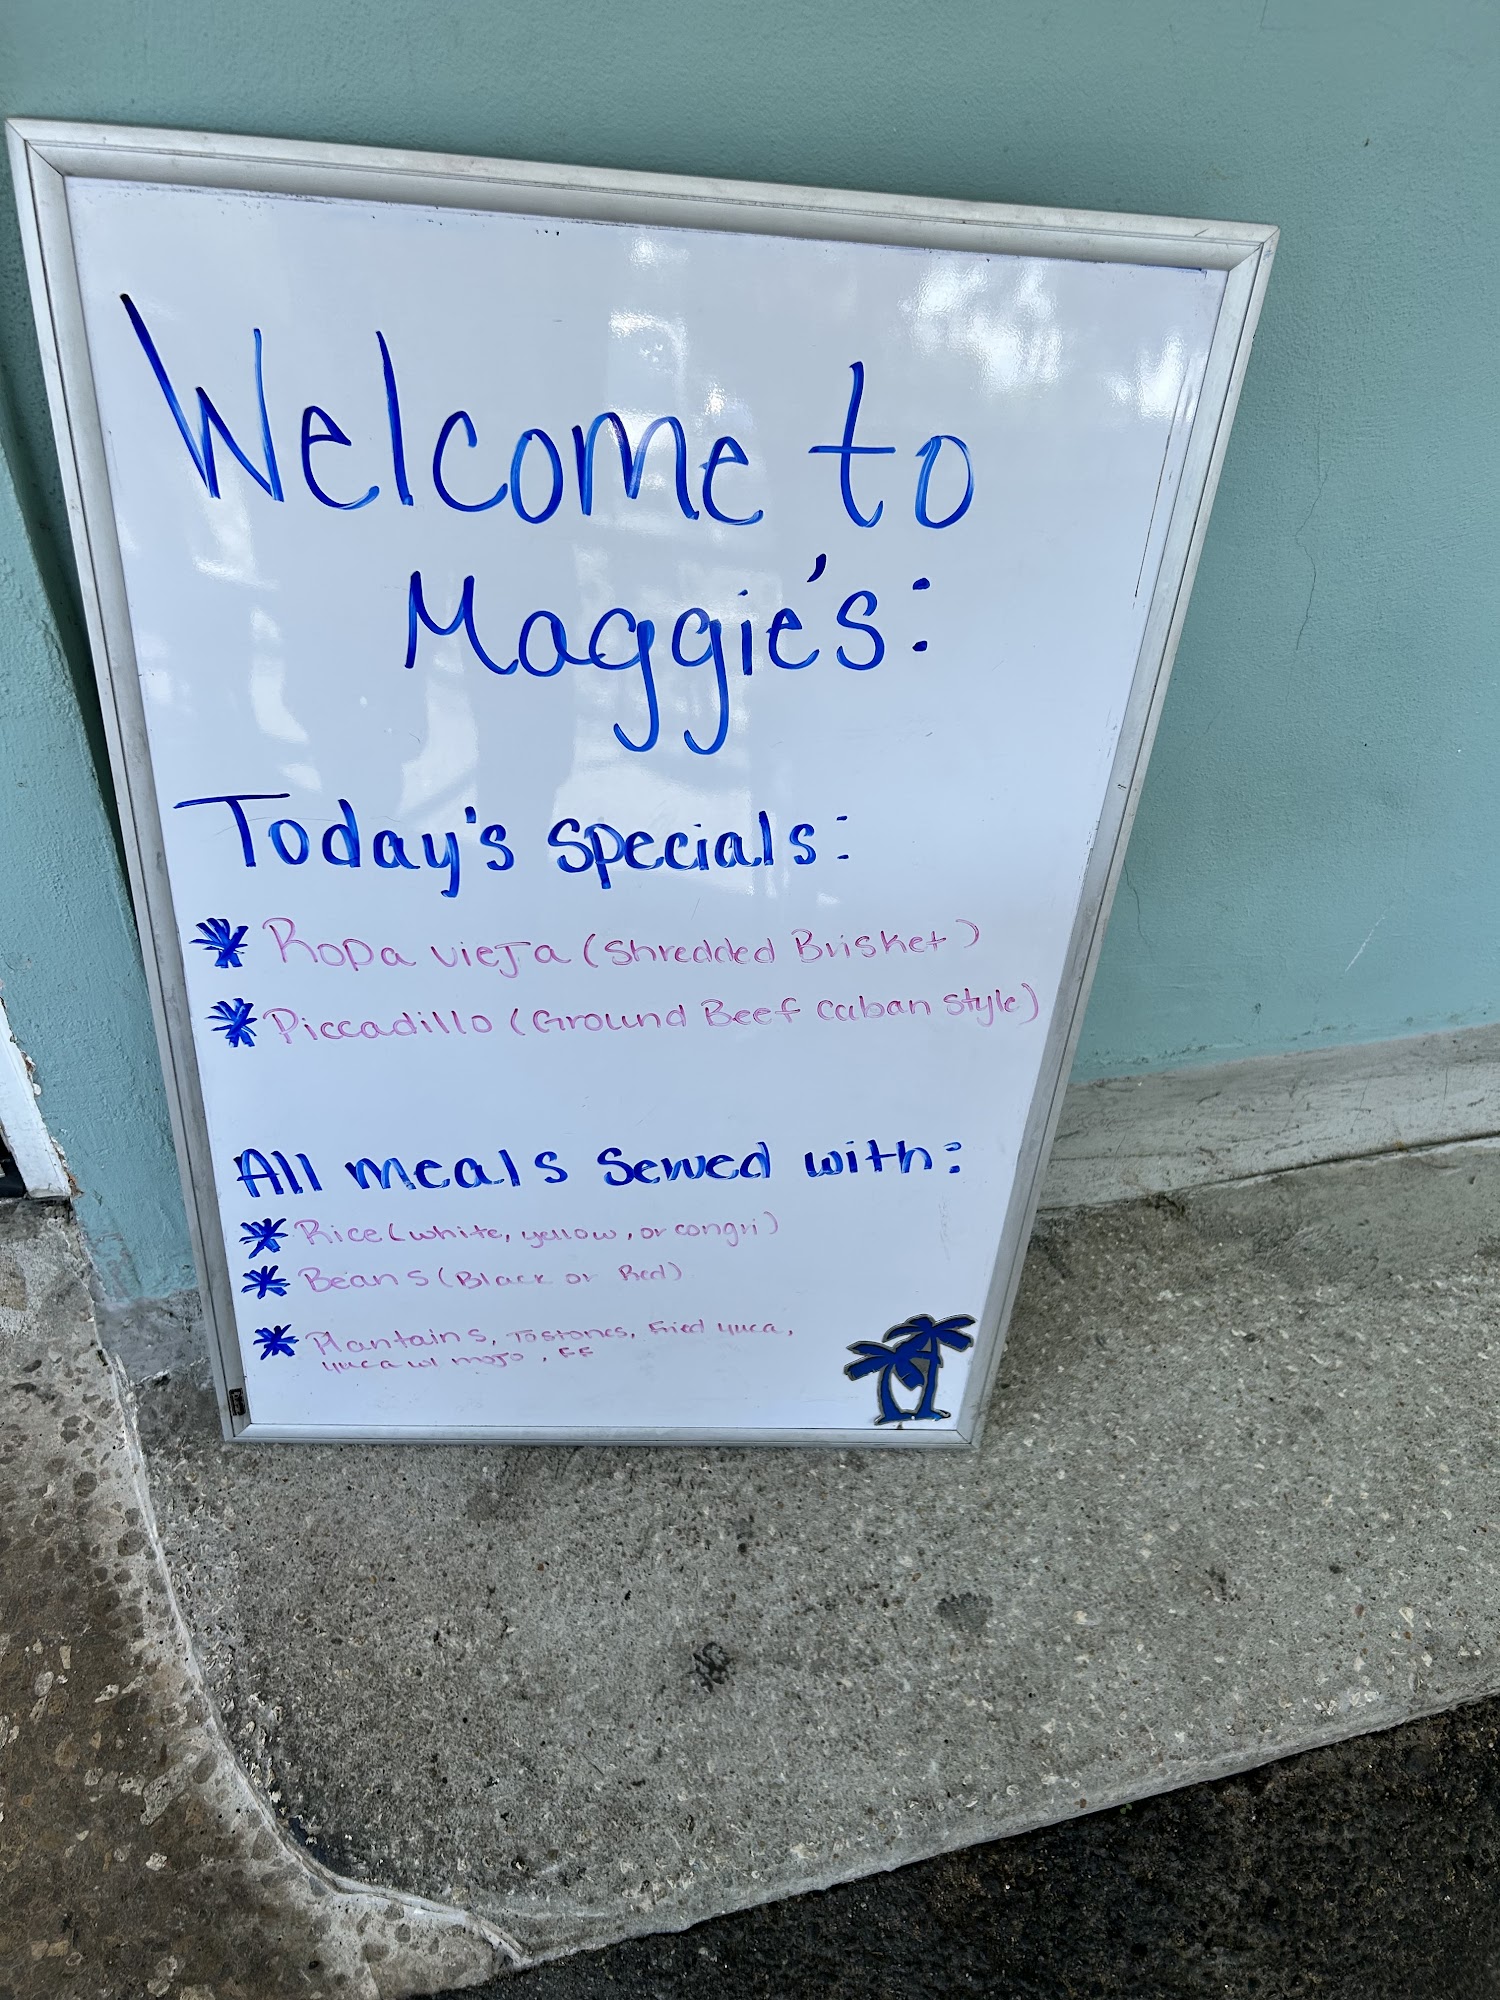 Welcome to
Maggie's:
Today's specials:
Ropa vieja (Shredded Brisket)
Piccadillo (Ground Beef Cuban style)
All meals served with:
Rice (white, yellow, or congri)
Beans (Black or Red)
Plantains, Tostones, Fried yuca,
yuca w/ mojo, FF